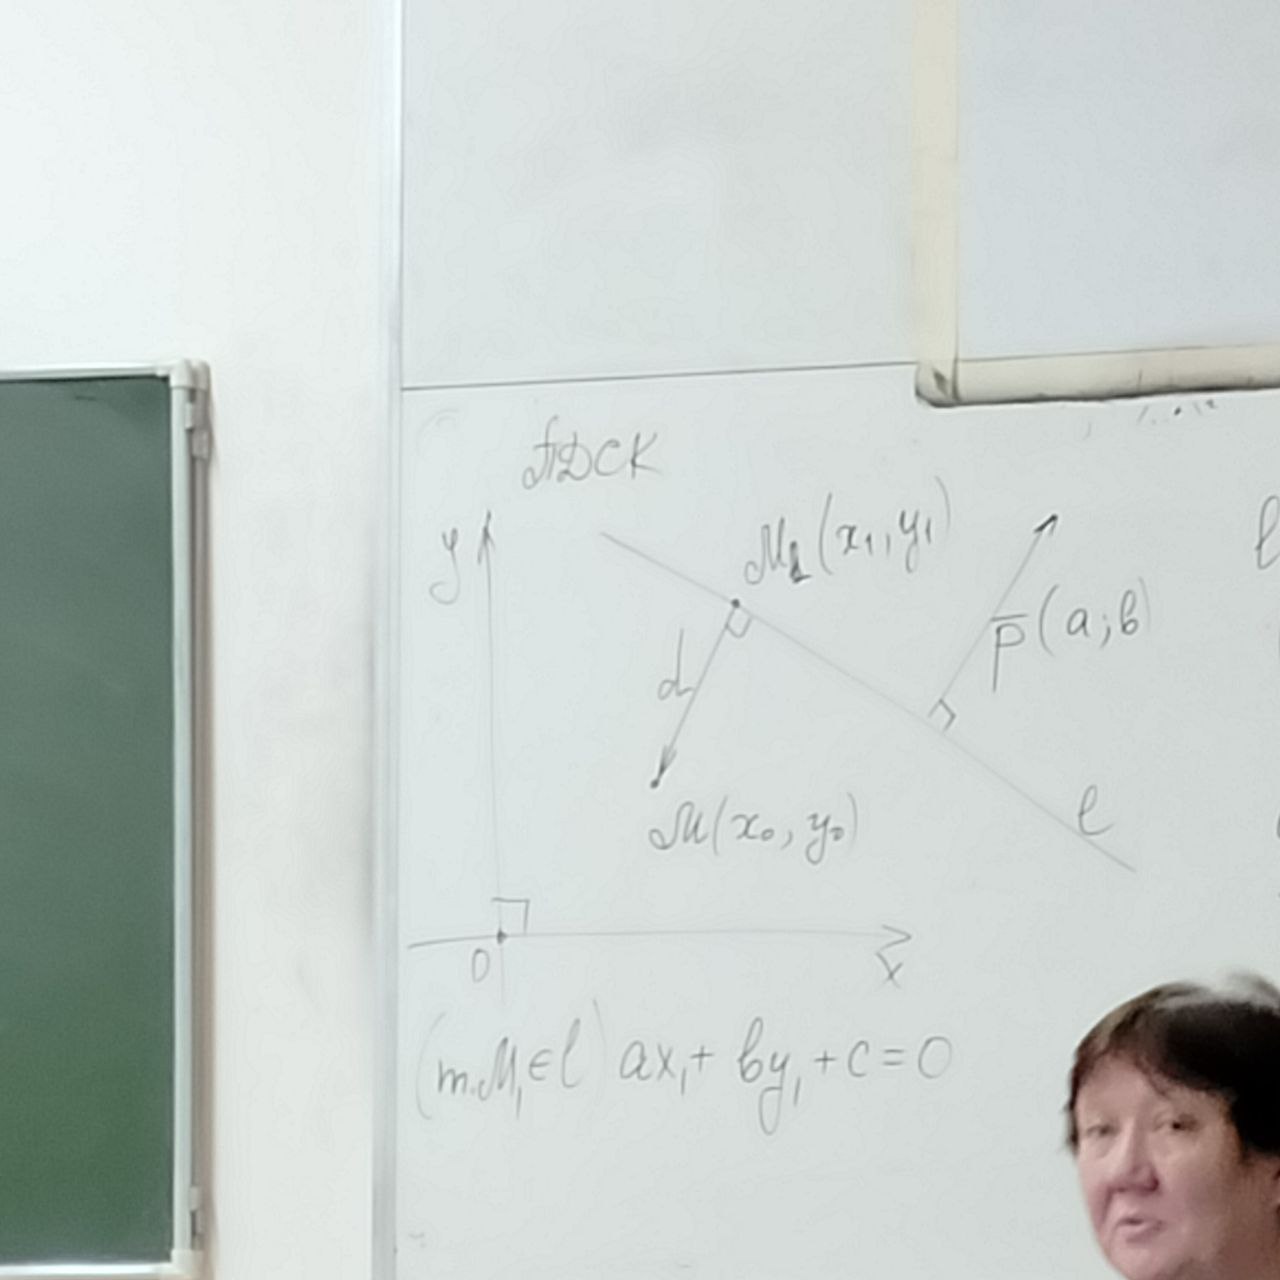 ПДСК
y
M₁(x₁, y₁)
p̅(a; b)
d
M(x₀, y₀)
ℓ
O
x
(т. M₁ ∈ ℓ) ax₁ + by₁ + c = 0